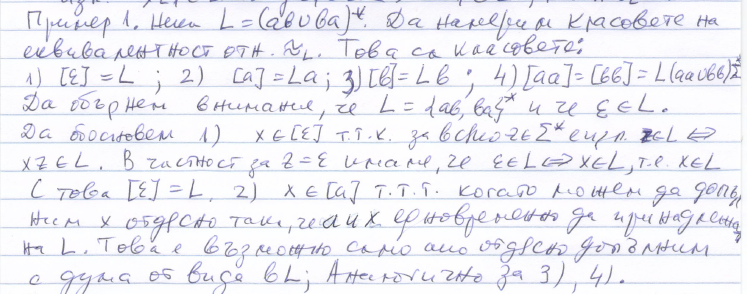 Пример 1. Нека L = (ab∪ba)*. Да намерим класовете на
еквивалентност отн. ≈L. Това са класовете:
1) [ε]=L ; 2) [a]=La ; 3) [b]=Lb ; 4) [aa]=[bb]=L(aa∪bb)Σ*
Да обърнем внимание, че L = {ab, ba}* и че ε∈L.
Да обосновем 1) x∈[ε] т.т.к. за всяко z∈Σ* z∈L ⇔
xz∈L. В частност за z=ε имаме, че ε∈L⇔x∈L, т.е. x∈L
С това [ε]=L. 2) x∈[a] т.т.т. когато можем да допъл
ним x отдясно така, че a и x едновременно да принадлежа
на L. Това е възможно само ако отдясно допълним
с дума от вида bL; Аналогично за 3), 4).